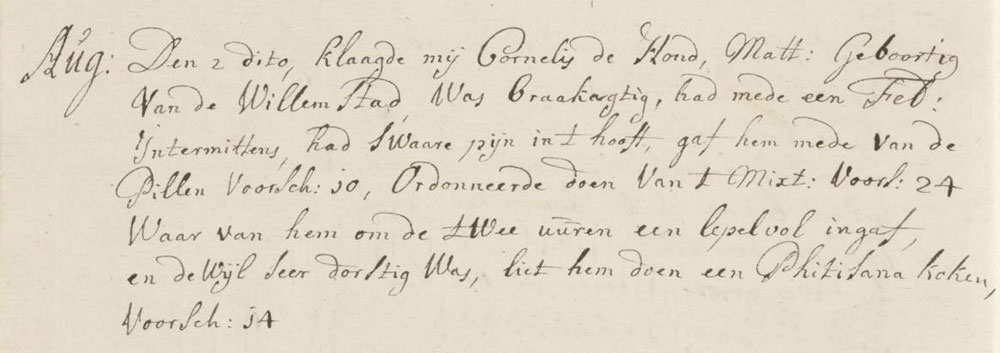 Aug: Den 2 dito, klaagde mij Cornelis de Hond, Matt: Geboortig
van de Willem Stad, Was braakagtig, had mede een Feb:
Intermittens, had swaare pijn in t hooft, gaf hem mede van de
Pillen Voorsch: 10, Ordonneerde doen Van t Mixt: Voors: 24
Waar van hem om de twee uuren een lepel vol ingaf,
en dewijl seer dorstig Was, liet hem doen een Phitisana koken,
Voorsch: 14